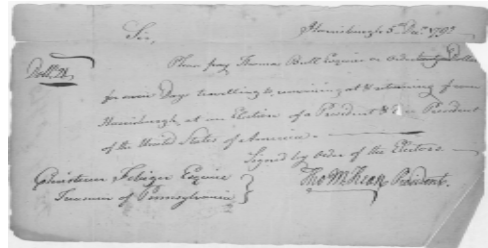 Harrisburgh 5th Decr. 1792
Sir,
Please pay Thomas Bull Esquire or Order Dollars
Dolls. 21.
for Days travelling to, remaining at & returning from
Harrisburgh at an Election of a President & Vice President
of the United States of America.
Signed by Order of the Electors
Christian Febiger Esquire
Treasurer of Pennsylvania
Tho M:Kean, President.